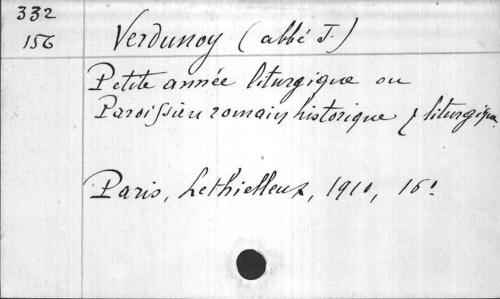 332
156
Verdunoy (abbé J.)
Petite année liturgique ou
Paroissien romain historique & liturgique
Paris, Lethielleux, 1910, 16°